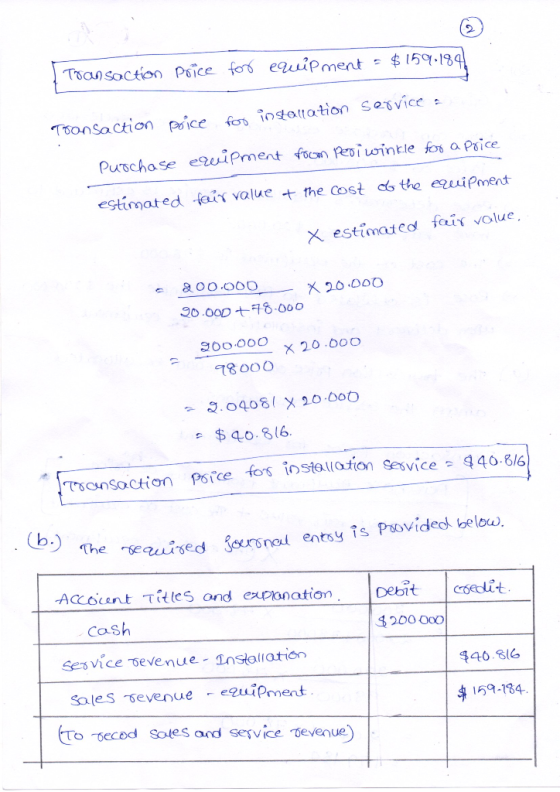 2
Transaction Price for equipment = $159.184
Transaction Price for installation service =
Purchase equipment from Periwinkle for a Price
estimated fair value + the cost of the equipment
X estimated fair value.
= 200.000 X 20.000
20.000+78.000
= 200.000 X 20.000
98000
= 2.04081 X 20.000
= $40.816.
Transaction Price for installation service = $40.816
(b.) The required journal entry is Provided below.
Account Titles and explanation. Debit credit.
cash $200000
service revenue - Installation $40.816
sales revenue - equipment $159.184.
(To recod sales and service revenue)